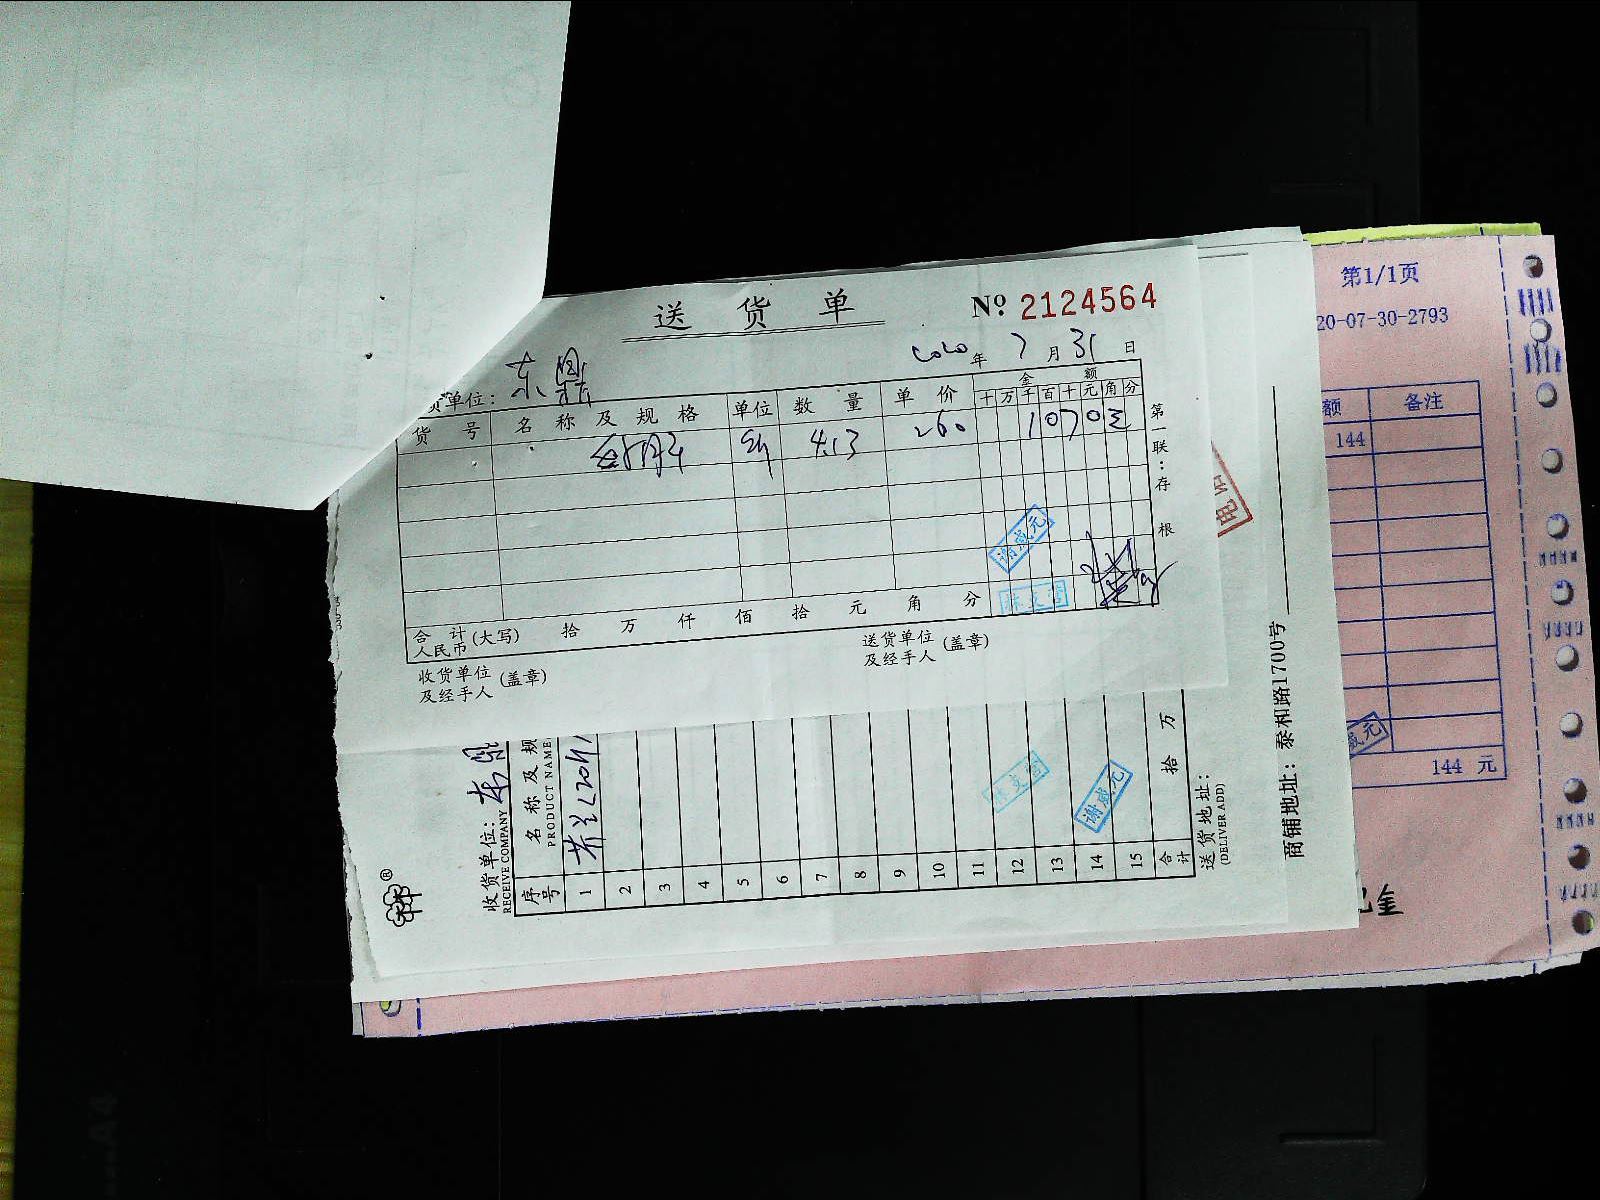 送 货 单 Nº 2124564
年 7 月 31 日
货单位: 东鼎
货 号 名 称 及 规 格 单位 数 量 单 价 金 额
十 万 千 百 十 元 角 分
4.13 260
第一联:存根
谢威元
林文营
合 计 人民币 (大写) 拾 万 仟 佰 拾 元 角 分
收货单位及经手人 (盖章)
送货单位及经手人 (盖章)
收货单位:
RECEIVE COMPANY
序号 名 称 及 规
PRODUCT NAME
1
2
3
4
5
6
7
8
9
10
11
12
13
14
15
合计 拾 万
林文营
谢威元
送货地址:
(DELIVER ADD)
商铺地址: 泰和路1700号
第1/1页
20-07-30-2793
额 备注
144
威元
144 元
A4